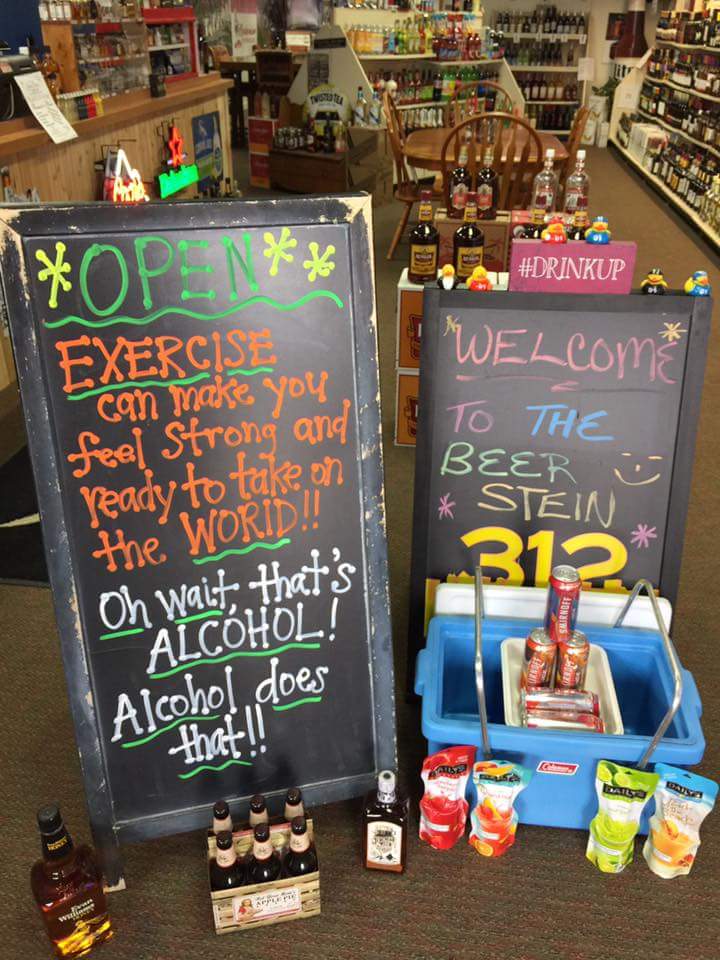 TWISTED TEA
*OPEN**
EXERCISE
can make you
feel strong and
ready to take on
the WORlD!!
Oh wait, that's
ALCOHOL!
Alcohol does
that!!
#DRINKUP
WELCOME
TO THE
BEER
STEIN
312
SMIRNOFF
Coleman
DAILY'S
DAILY'S
DAILY'S
DAILY'S
Evan
Williams
APPLE PIE